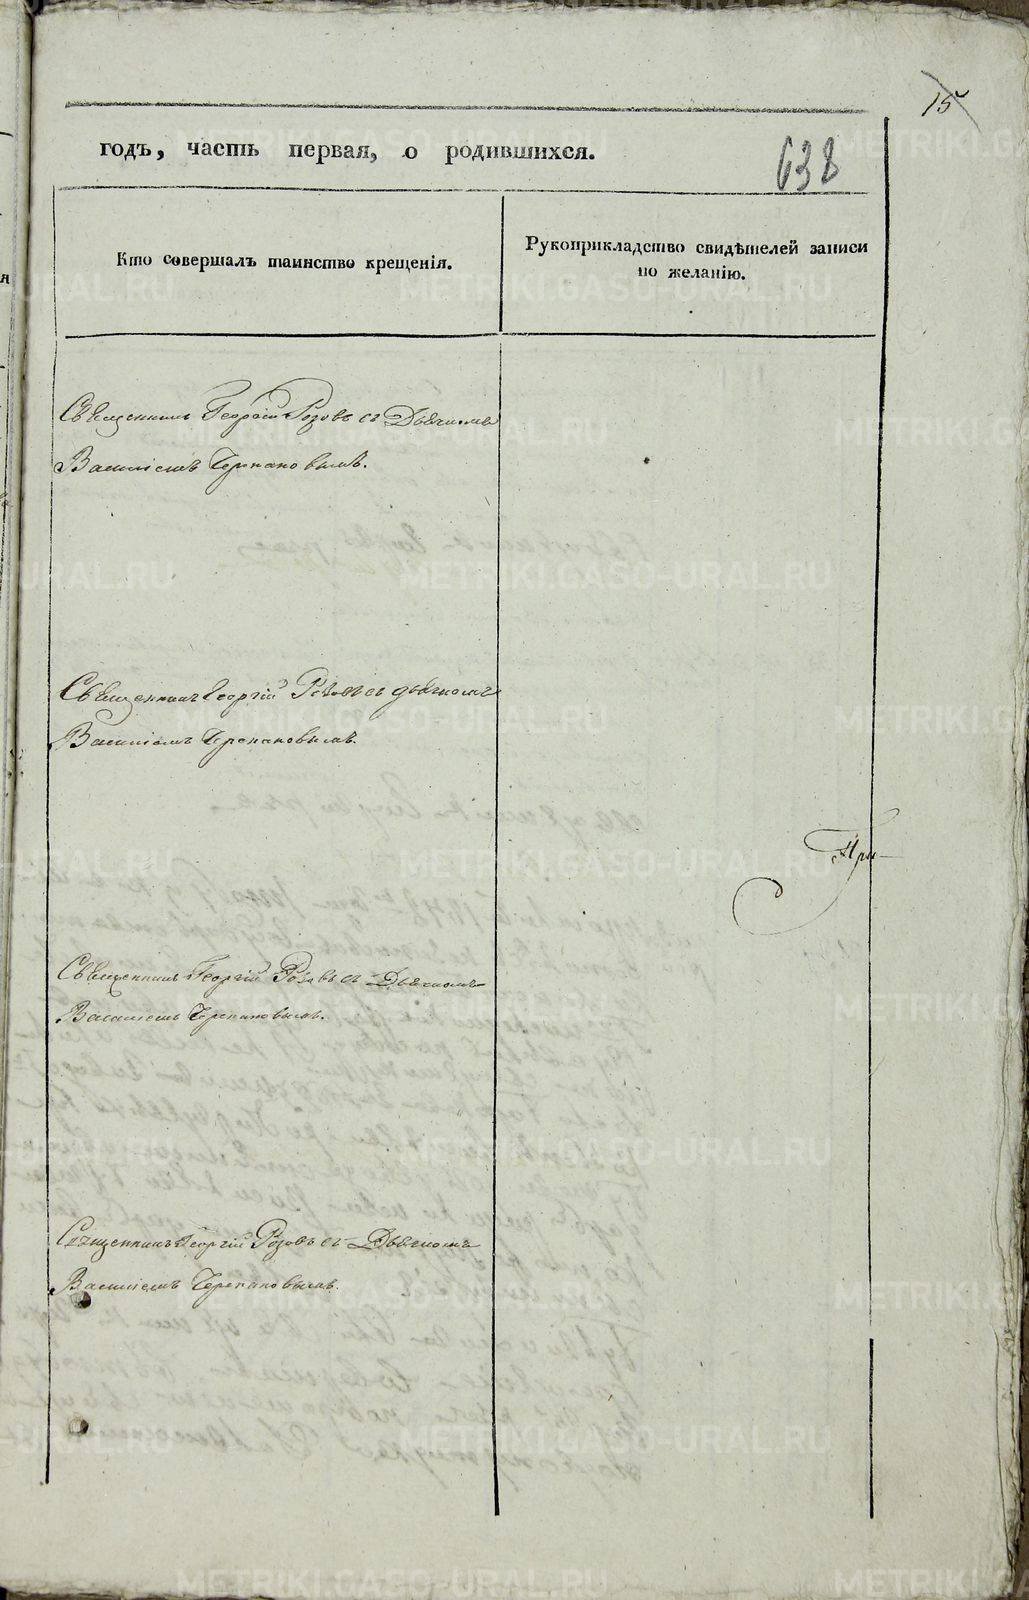 15
годъ, часть первая, о родившихся.
638
Кто совершалъ таинство крещенія.
Рукоприкладство свидѣтелей записи
по желанію.
Священникъ Георгій Розовъ съ Дьячкомъ
Василіемъ Черепановымъ.
Священникъ Георгій Розовъ съ дьячкомъ
Василіемъ Черепановымъ.
При-
Священникъ Георгій Розовъ съ Дьячкомъ
Василіемъ Черепановымъ.
Священникъ Георгій Розовъ съ Дьячкомъ
Василіемъ Черепановымъ.
METRIKI.GASO-URAL.RU